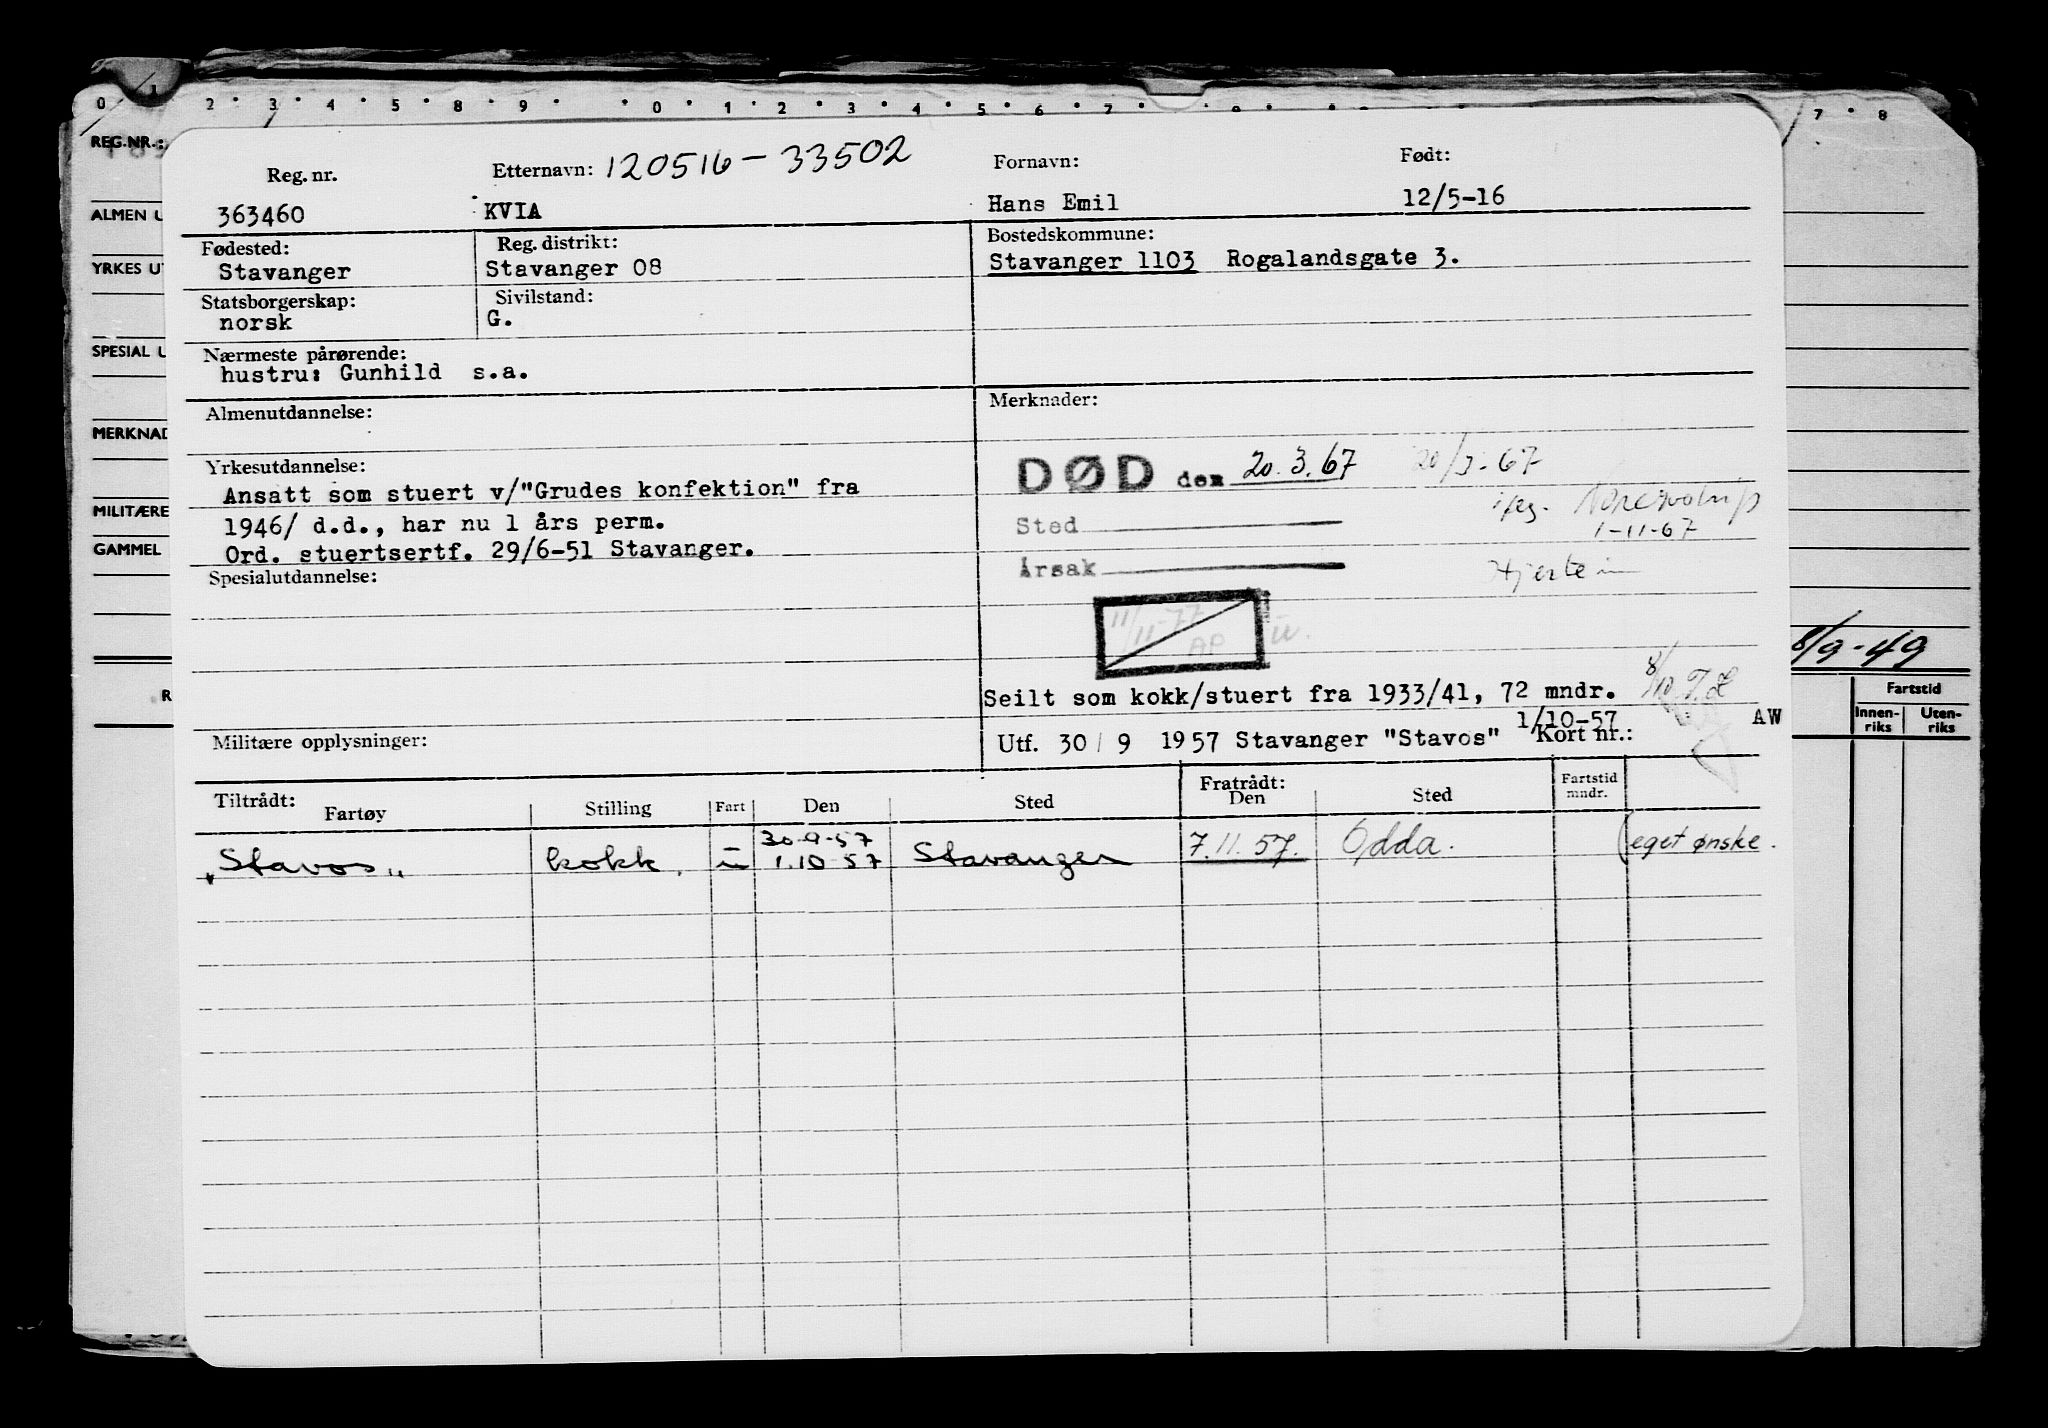 0 1 2 3 4 5 8 9 0 1 2 3 4 5 6 7 8 7 8
REG.NR.:
Reg. nr. Etternavn: 120516-33502 Fornavn: Født:
363460 KVIA Hans Emil 12/5-16
ALMEN U
Fødested: Reg. distrikt: Bostedskommune:
Stavanger Stavanger 08 Stavanger 1103 Rogalandsgate 3.
YRKES UT
Statsborgerskap: Sivilstand:
norsk G.
SPESIAL U
Nærmeste pårørende:
hustru: Gunhild s.a.
Almenutdannelse: Merknader:
MERKNAD
Yrkesutdannelse:
Ansatt som stuert v/"Grudes konfektion" fra
1946/ d.d., har nu 1 års perm.
Ord. stuertsertf. 29/6-51 Stavanger.
MILITÆRE
GAMMEL
DØD den 20.3.67 20/3-67
Sted
1-11-67
Årsak
Spesialutdannelse:
11/11-77
AP ū.
8/9-49
Seilt som kokk/stuert fra 1933/41, 72 mndr. 8/10
R
Fartstid
Innen-riks Uten-riks
1/10-57 AW
Militære opplysninger: Utf. 30/9 1957 Stavanger "Stavos" Kort nr.:
Tiltrådt: Fratrådt: Fartstid
Fartøy Stilling Fart Den Sted Den Sted mndr.
30-9-57
"Stavos" kokk ū 1.10-57 Stavanger 7.11.57. Odda. (eget ønske.